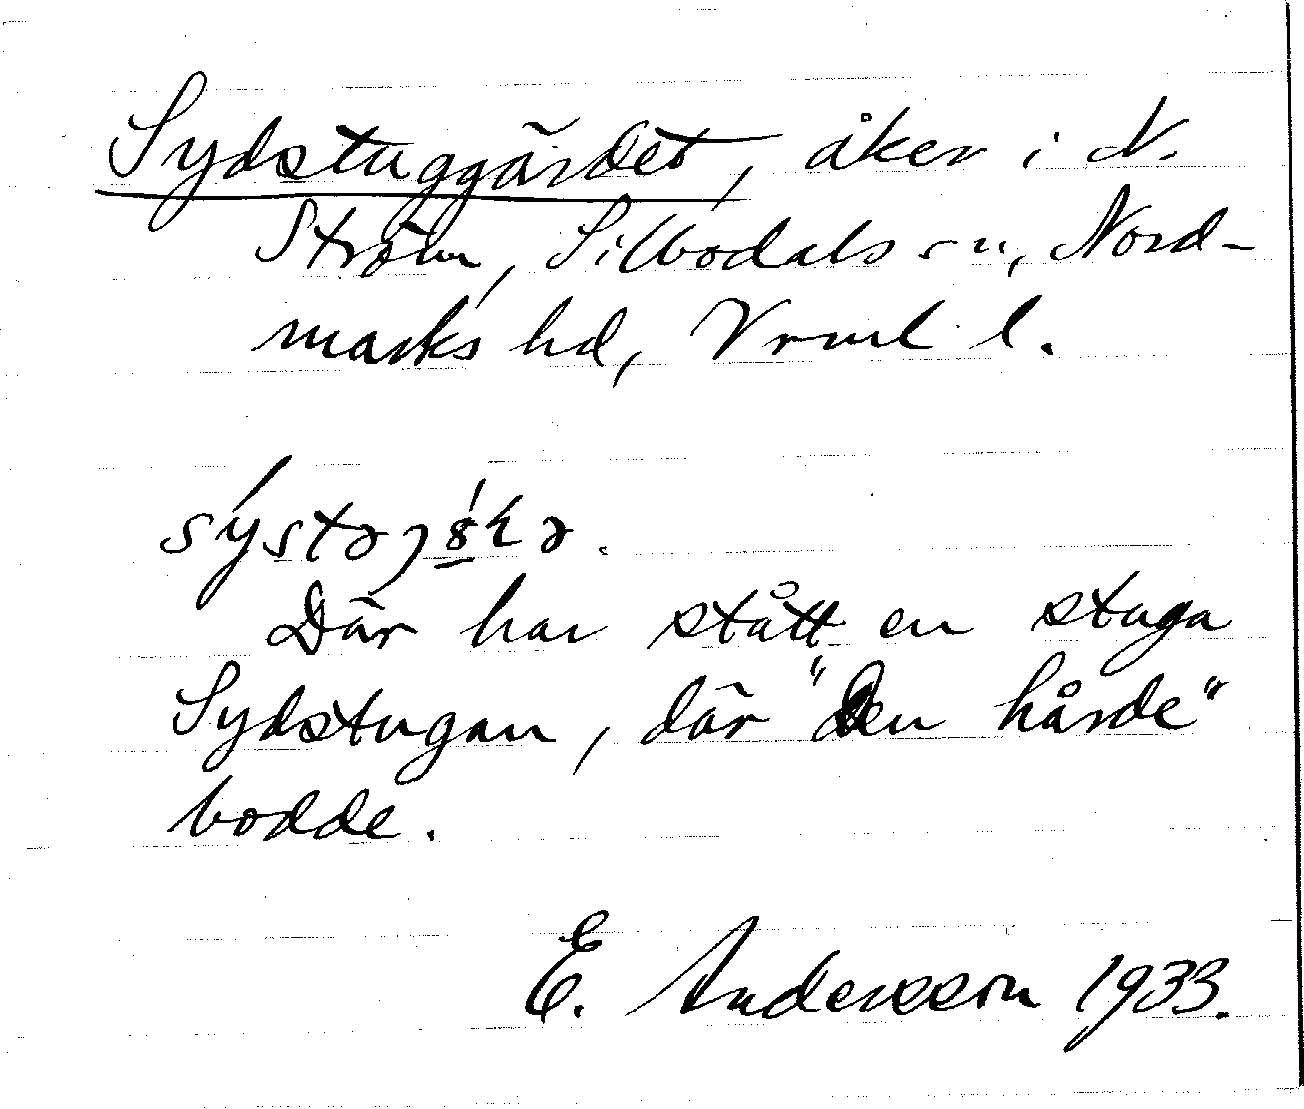 Sydstuggärdet, åker i N.
Ström, Silbodals sn, Nord-
marks hd, Vrml l.
Där har stått en stuga
Sydstugan, där "Den hårde"
bodde.
E. Andersson 1933.